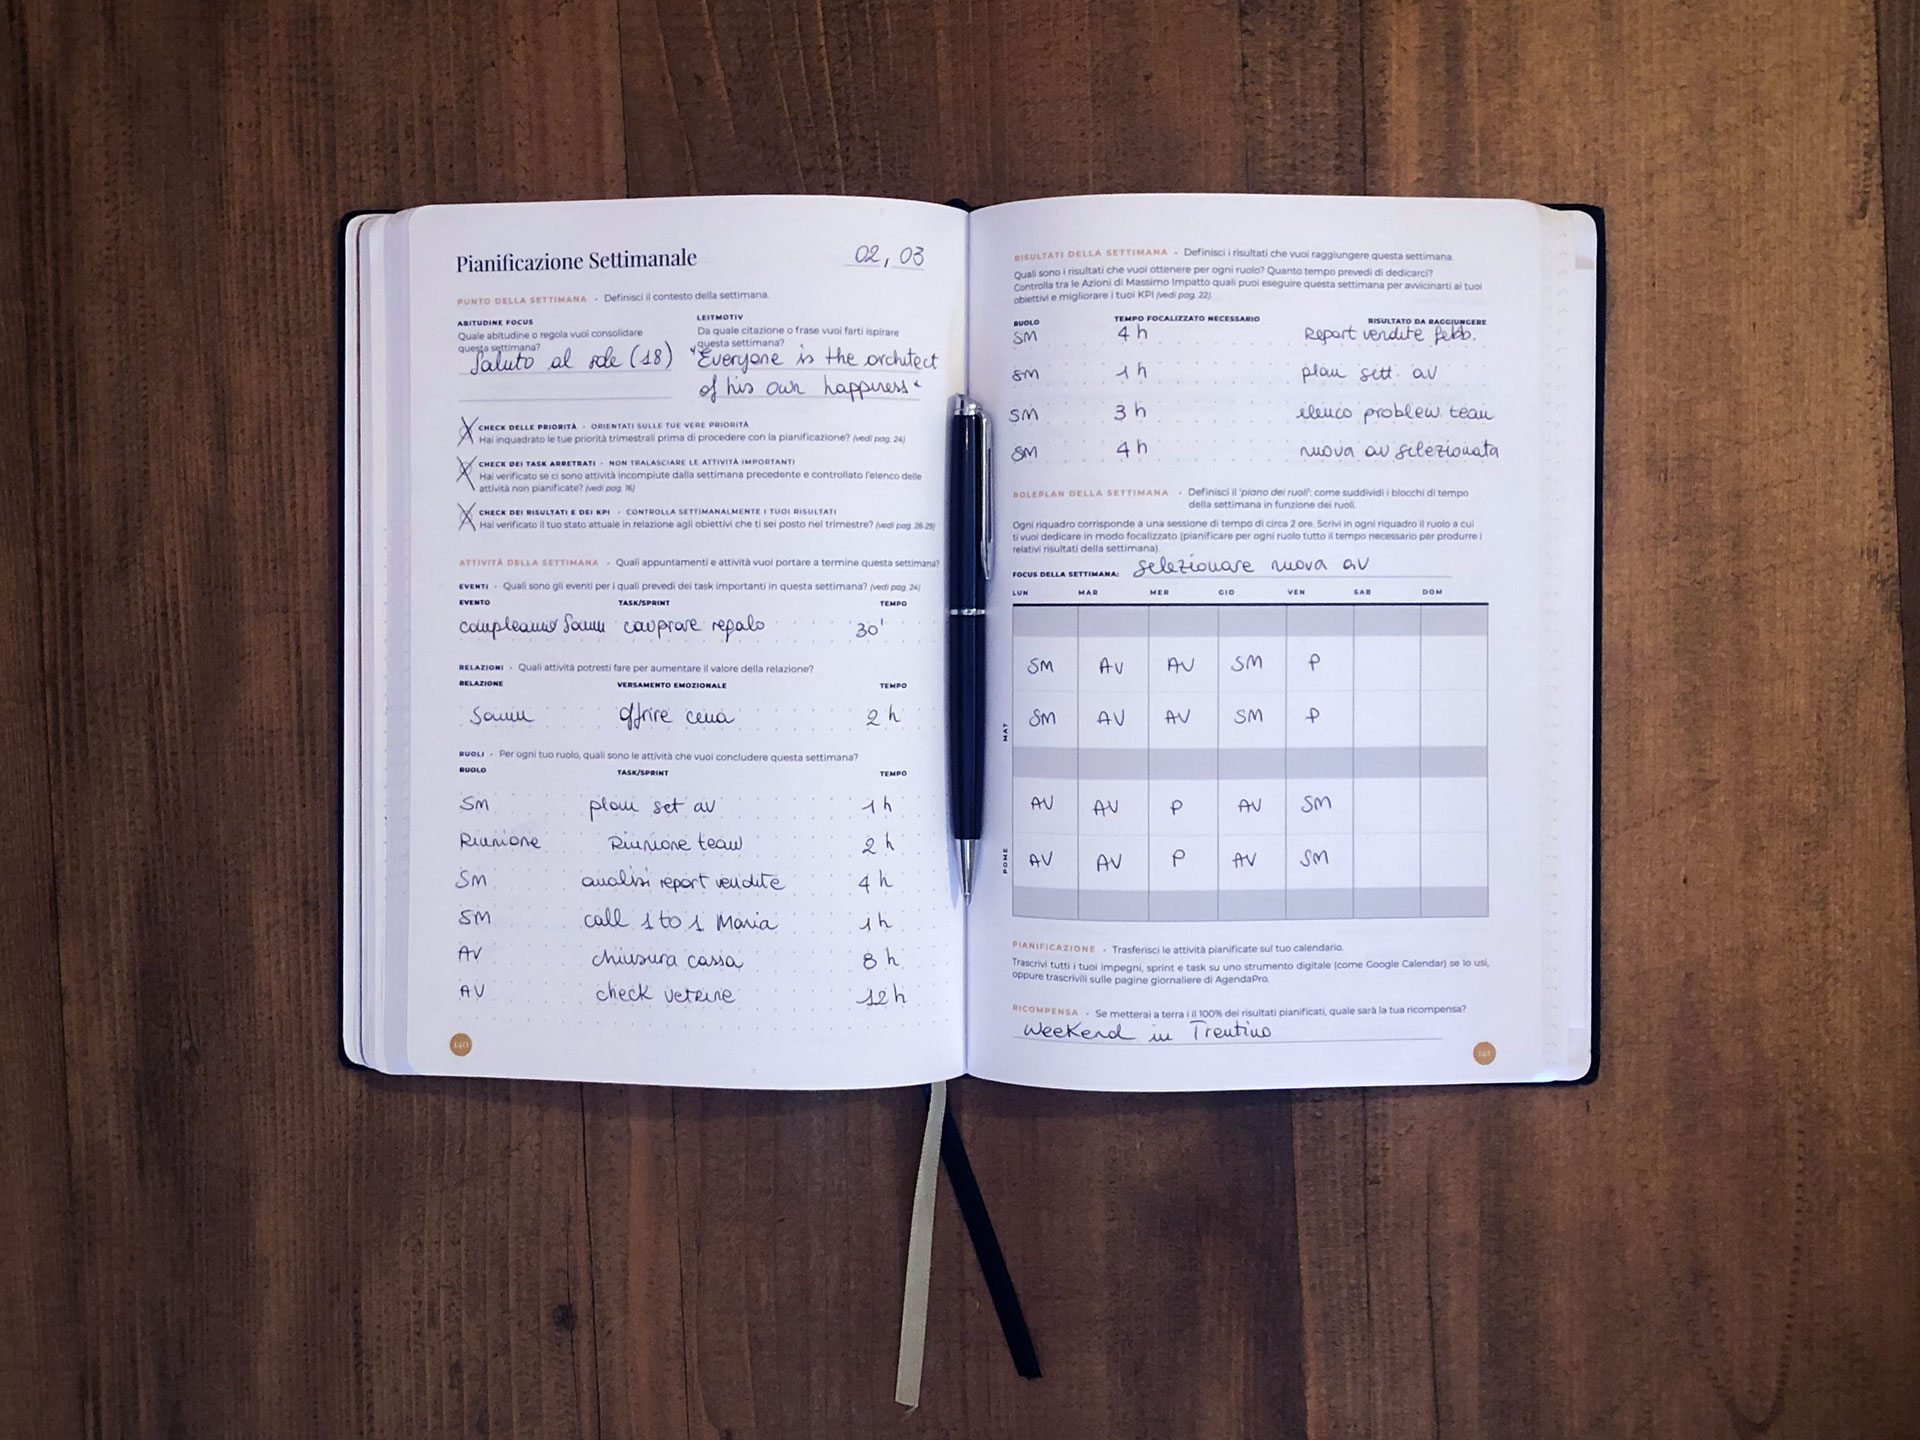 Pianificazione Settimanale 02, 03
PUNTO DELLA SETTIMANA • Definisci il contesto della settimana.
ABITUDINE FOCUS
Quale abitudine o regola vuoi consolidare
questa settimana?
Saluto al sole (18)
LEITMOTIV
Da quale citazione o frase vuoi farti ispirare
questa settimana?
"Everyone is the architect
of his own happiness"
X CHECK DELLE PRIORITÀ • ORIENTATI SULLE TUE VERE PRIORITÀ
Hai inquadrato le tue priorità trimestrali prima di procedere con la pianificazione? (vedi pag. 24)
X CHECK DEI TASK ARRETRATI • NON TRALASCIARE LE ATTIVITÀ IMPORTANTI
Hai verificato se ci sono attività incompiute dalla settimana precedente e controllato l'elenco delle
attività non pianificate? (vedi pag. 16)
X CHECK DEI RISULTATI E DEI KPI • CONTROLLA SETTIMANALMENTE I TUOI RISULTATI
Hai verificato il tuo stato attuale in relazione agli obiettivi che ti sei posto nel trimestre? (vedi pag. 28-29)
ATTIVITÀ DELLA SETTIMANA • Quali appuntamenti e attività vuoi portare a termine questa settimana?
EVENTI • Quali sono gli eventi per i quali prevedi dei task importanti in questa settimana? (vedi pag. 24)
EVENTO TASK/SPRINT TEMPO
compleanno Samu comprare regalo 30'
RELAZIONI • Quali attività potresti fare per aumentare il valore della relazione?
RELAZIONE VERSAMENTO EMOZIONALE TEMPO
Samu offrire cena 2 h
RUOLI • Per ogni tuo ruolo, quali sono le attività che vuoi concludere questa settimana?
RUOLO TASK/SPRINT TEMPO
SM plan set av 1 h
Riunione Riunione team 2 h
SM analisi report vendite 4 h
SM call 1 to 1 Maria 1 h
AV chiusura cassa 8 h
AV check vetrine 12 h
140
RISULTATI DELLA SETTIMANA • Definisci i risultati che vuoi raggiungere questa settimana.
Quali sono i risultati che vuoi ottenere per ogni ruolo? Quanto tempo prevedi di dedicarci?
Controlla tra le Azioni di Massimo Impatto quali puoi eseguire questa settimana per avvicinarti ai tuoi
obiettivi e migliorare i tuoi KPI (vedi pag. 22).
RUOLO TEMPO FOCALIZZATO NECESSARIO RISULTATO DA RAGGIUNGERE
SM 4 h Report vendite febb.
SM 1 h plan sett. av
SM 3 h elenco problem team
SM 4 h nuova av selezionata
ROLEPLAN DELLA SETTIMANA • Definisci il 'piano dei ruoli': come suddividi i blocchi di tempo
della settimana in funzione dei ruoli.
Ogni riquadro corrisponde a una sessione di tempo di circa 2 ore. Scrivi in ogni riquadro il ruolo a cui
ti vuoi dedicare in modo focalizzato (pianificare per ogni ruolo tutto il tempo necessario per produrre i
relativi risultati della settimana).
FOCUS DELLA SETTIMANA: selezionare nuova av
LUN MAR MER GIO VEN SAB DOM
MAT
SM AV AV SM P
SM AV AV SM P
POME
AV AV P AV SM
AV AV P AV SM
PIANIFICAZIONE • Trasferisci le attività pianificate sul tuo calendario.
Trascrivi tutti i tuoi impegni, sprint e task su uno strumento digitale (come Google Calendar) se lo usi,
oppure trascrivili sulle pagine giornaliere di AgendaPro.
RICOMPENSA • Se metterai a terra i il 100% dei risultati pianificati, quale sarà la tua ricompensa?
Weekend in Trentino
141